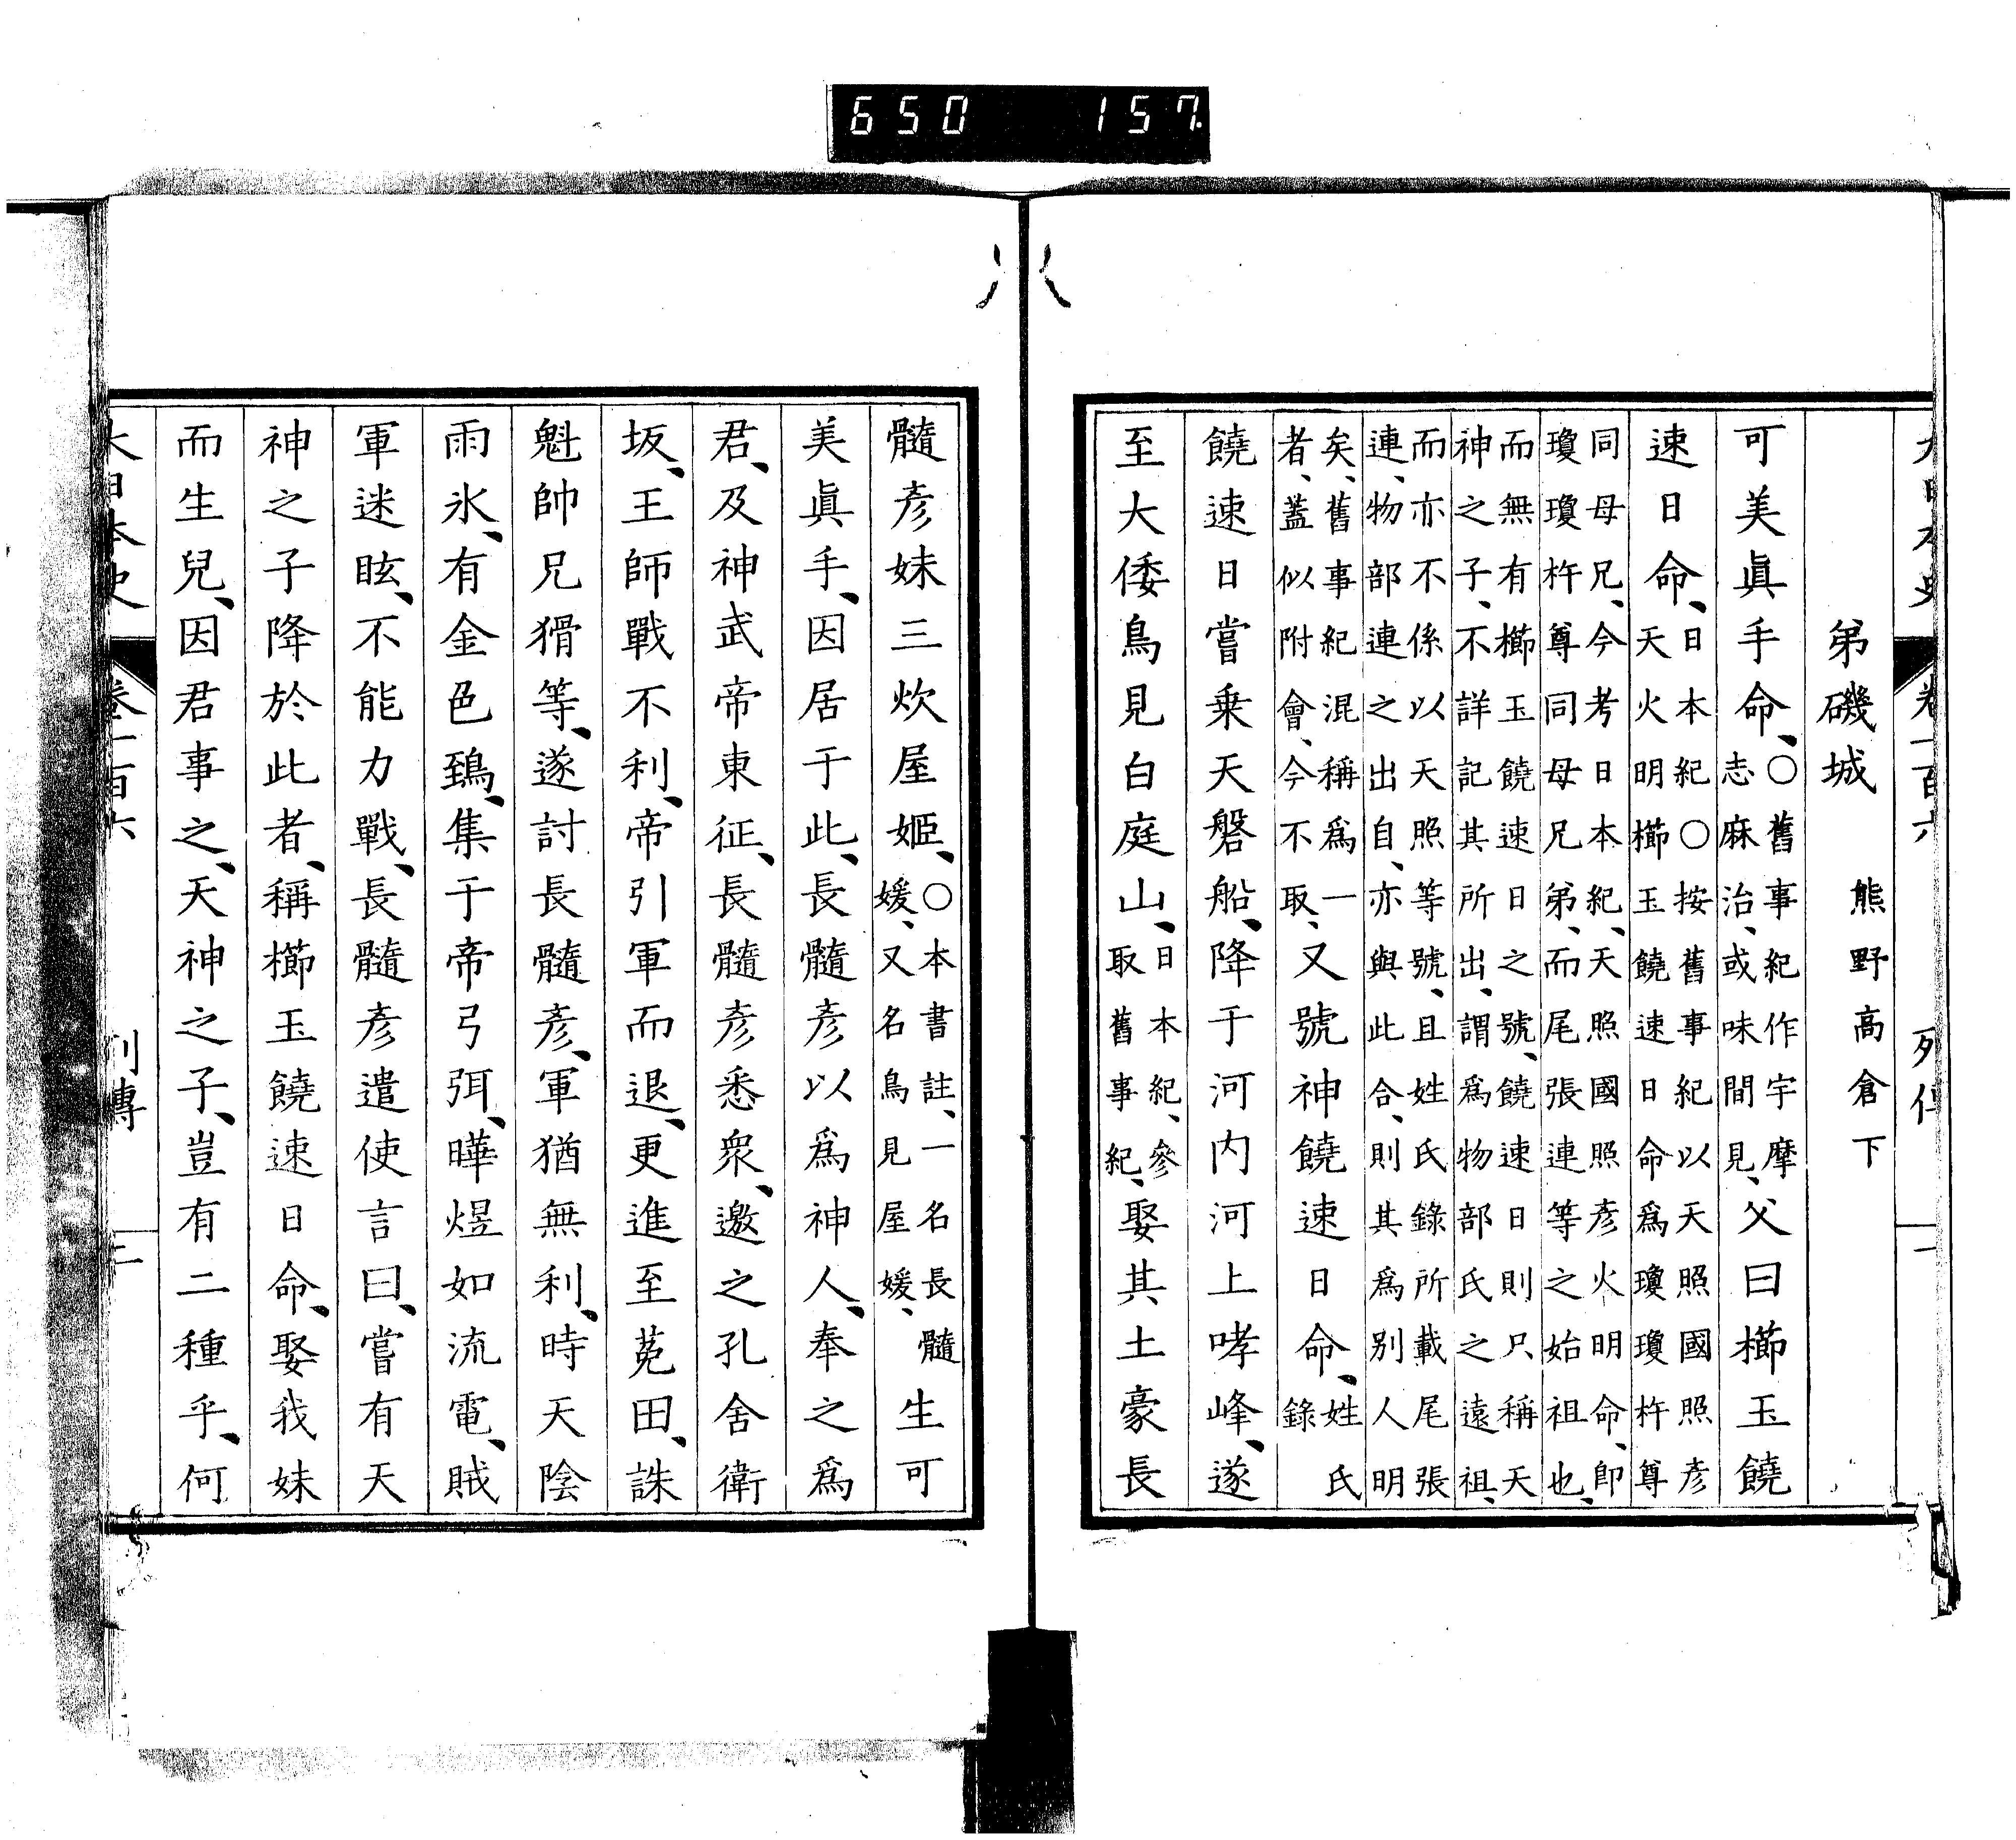 650 157
大日本史 卷一百六 列傳 一
弟磯城 熊野高倉下
可美眞手命、〇舊事紀作宇摩志麻治、或味間見、父曰櫛玉饒
速日命、日本紀〇按舊事紀以天照國照彥天火明櫛玉饒速日命爲瓊瓊杵尊
同母兄、今考日本紀、天照國照彥火明命、卽瓊瓊杵尊同母兄弟、而尾張連等之始祖也、
而無有櫛玉饒速日之號、饒速日則只稱天神之子、不詳記其所出、謂爲物部氏之遠祖、
而亦不係以天照等號、且姓氏錄所載尾張連、物部連之出自、亦與此合、則其爲別人明
矣、舊事紀混稱爲一者、蓋似附會、今不取、又號神饒速日命、姓氏錄
饒速日嘗乘天磐船、降于河内河上哮峰、遂
至大倭鳥見白庭山、日本紀、參取舊事紀、娶其土豪長
髓彥妹三炊屋姬、〇本書註、一名長髓媛、又名鳥見屋媛、生可
美眞手、因居于此、長髓彥以爲神人、奉之爲
君、及神武帝東征、長髓彥悉衆、邀之孔舍衛
坂、王師戰不利、帝引軍而退、更進至菟田、誅
魁帥兄猾等、遂討長髓彥、軍猶無利、時天陰
雨氷、有金色鵄、集于帝弓弭、曄煜如流電、賊
軍迷眩、不能力戰、長髓彥遣使言曰、嘗有天
神之子降於此者、稱櫛玉饒速日命、娶我妹
而生兒、因君事之、天神之子、豈有二種乎、何
大日本史 卷一百六 列傳 二